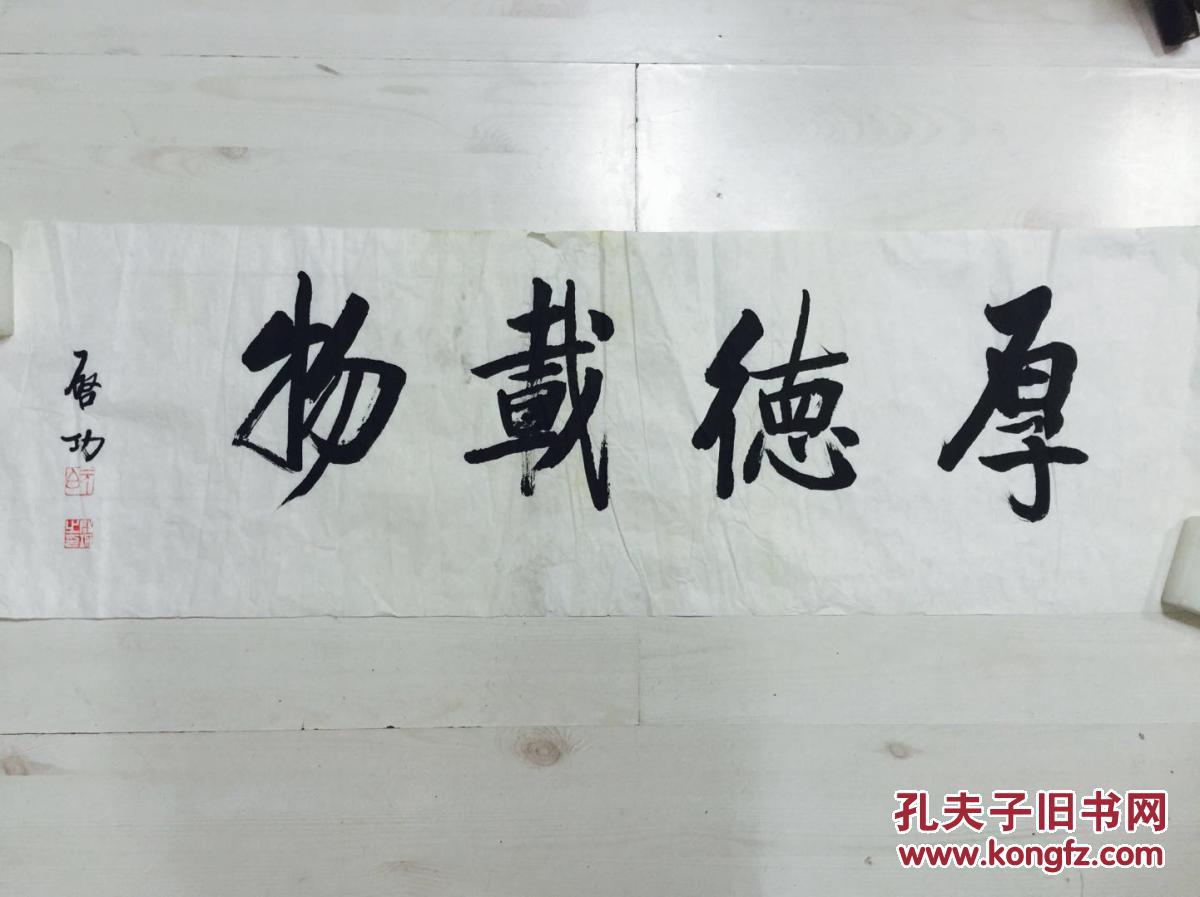 厚德載物
啓功
孔夫子旧书网
www.kongfz.com